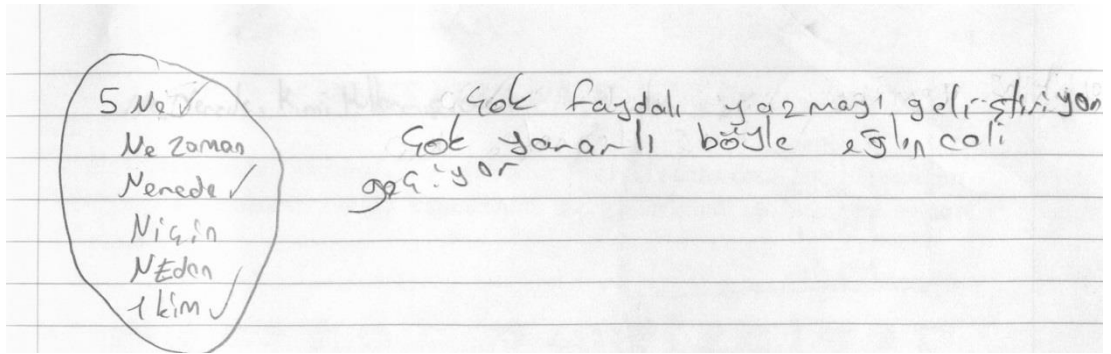 5 Ne ✓
Ne zaman
Nerede ✓
Niçin
NEden
1 kim ✓
Çok faydalı yazmayı geliştiriyor
Çok yararlı böyle eğlıncali
geçiyor